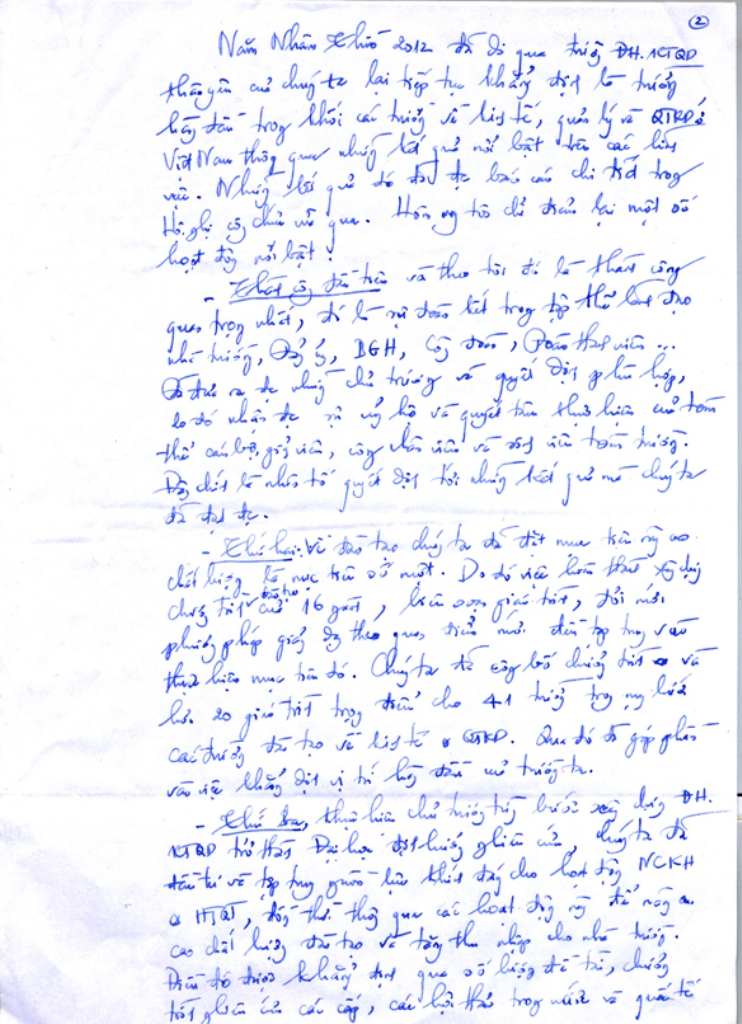 2
Năm Nhâm Thìn 2012 đã đi qua trường ĐH. KTQD
thân yêu của chúng ta lại tiếp tục khẳng định là trường
hàng đầu trong khối các trường về kinh tế, quản lý và QTKD ở
Việt Nam thông qua những kết quả nổi bật trên các lĩnh
vực. Những kết quả đó đã đc báo cáo chi tiết trong
Hội nghị công chức vừa qua. Hôm nay tôi chỉ điểm lại một số
hoạt động nổi bật:
- Thành công đầu tiên và theo tôi đó là thành công
quan trọng nhất, đó là sự đoàn kết trong tập thể lãnh đạo
nhà trường, Đảng ủy, BGH, Công đoàn, Đoàn thanh niên ...
Đã đưa ra đc những chủ trương và quyết định phù hợp,
do đó nhận đc sự ủng hộ và quyết tâm thực hiện của toàn
thể cán bộ, giảng viên, công nhân viên và sinh viên toàn trường.
Đây chính là nhân tố quyết định tới những kết quả mà chúng ta
đã đạt đc.
- Thứ hai. Về đào tạo chúng ta đã đặt mục tiêu nâng cao
chất lượng là mục tiêu số một. Do đó việc hoàn thành xây dựng
chương trình đào tạo của 16 ngành, biên soạn giáo trình, đổi mới
phương pháp giảng dạy theo quan điểm mới đều tập trung vào
thực hiện mục tiêu đó. Chúng ta đã công bố chương trình và
hơn 20 giáo trình trọng điểm cho 41 trường trong mạng lưới
các trường đào tạo về kinh tế & QTKD. Qua đó đã góp phần
vào việc khẳng định vị trí hàng đầu của trường ta.
- Thứ ba, thực hiện chủ trương từng bước xây dựng ĐH.
KTQD trở thành Đại học định hướng nghiên cứu, chúng ta đã
đầu tư và tập trung nguồn lực thích đáng cho hoạt động NCKH
& HTQT, đồng thời thông qua các hoạt động này để nâng
cao chất lượng đào tạo và tăng thu nhập cho nhà trường.
Điều đó được khẳng định qua số lượng đề tài, chương
trình nghiên cứu các cấp, các hội thảo trong nước và quốc tế